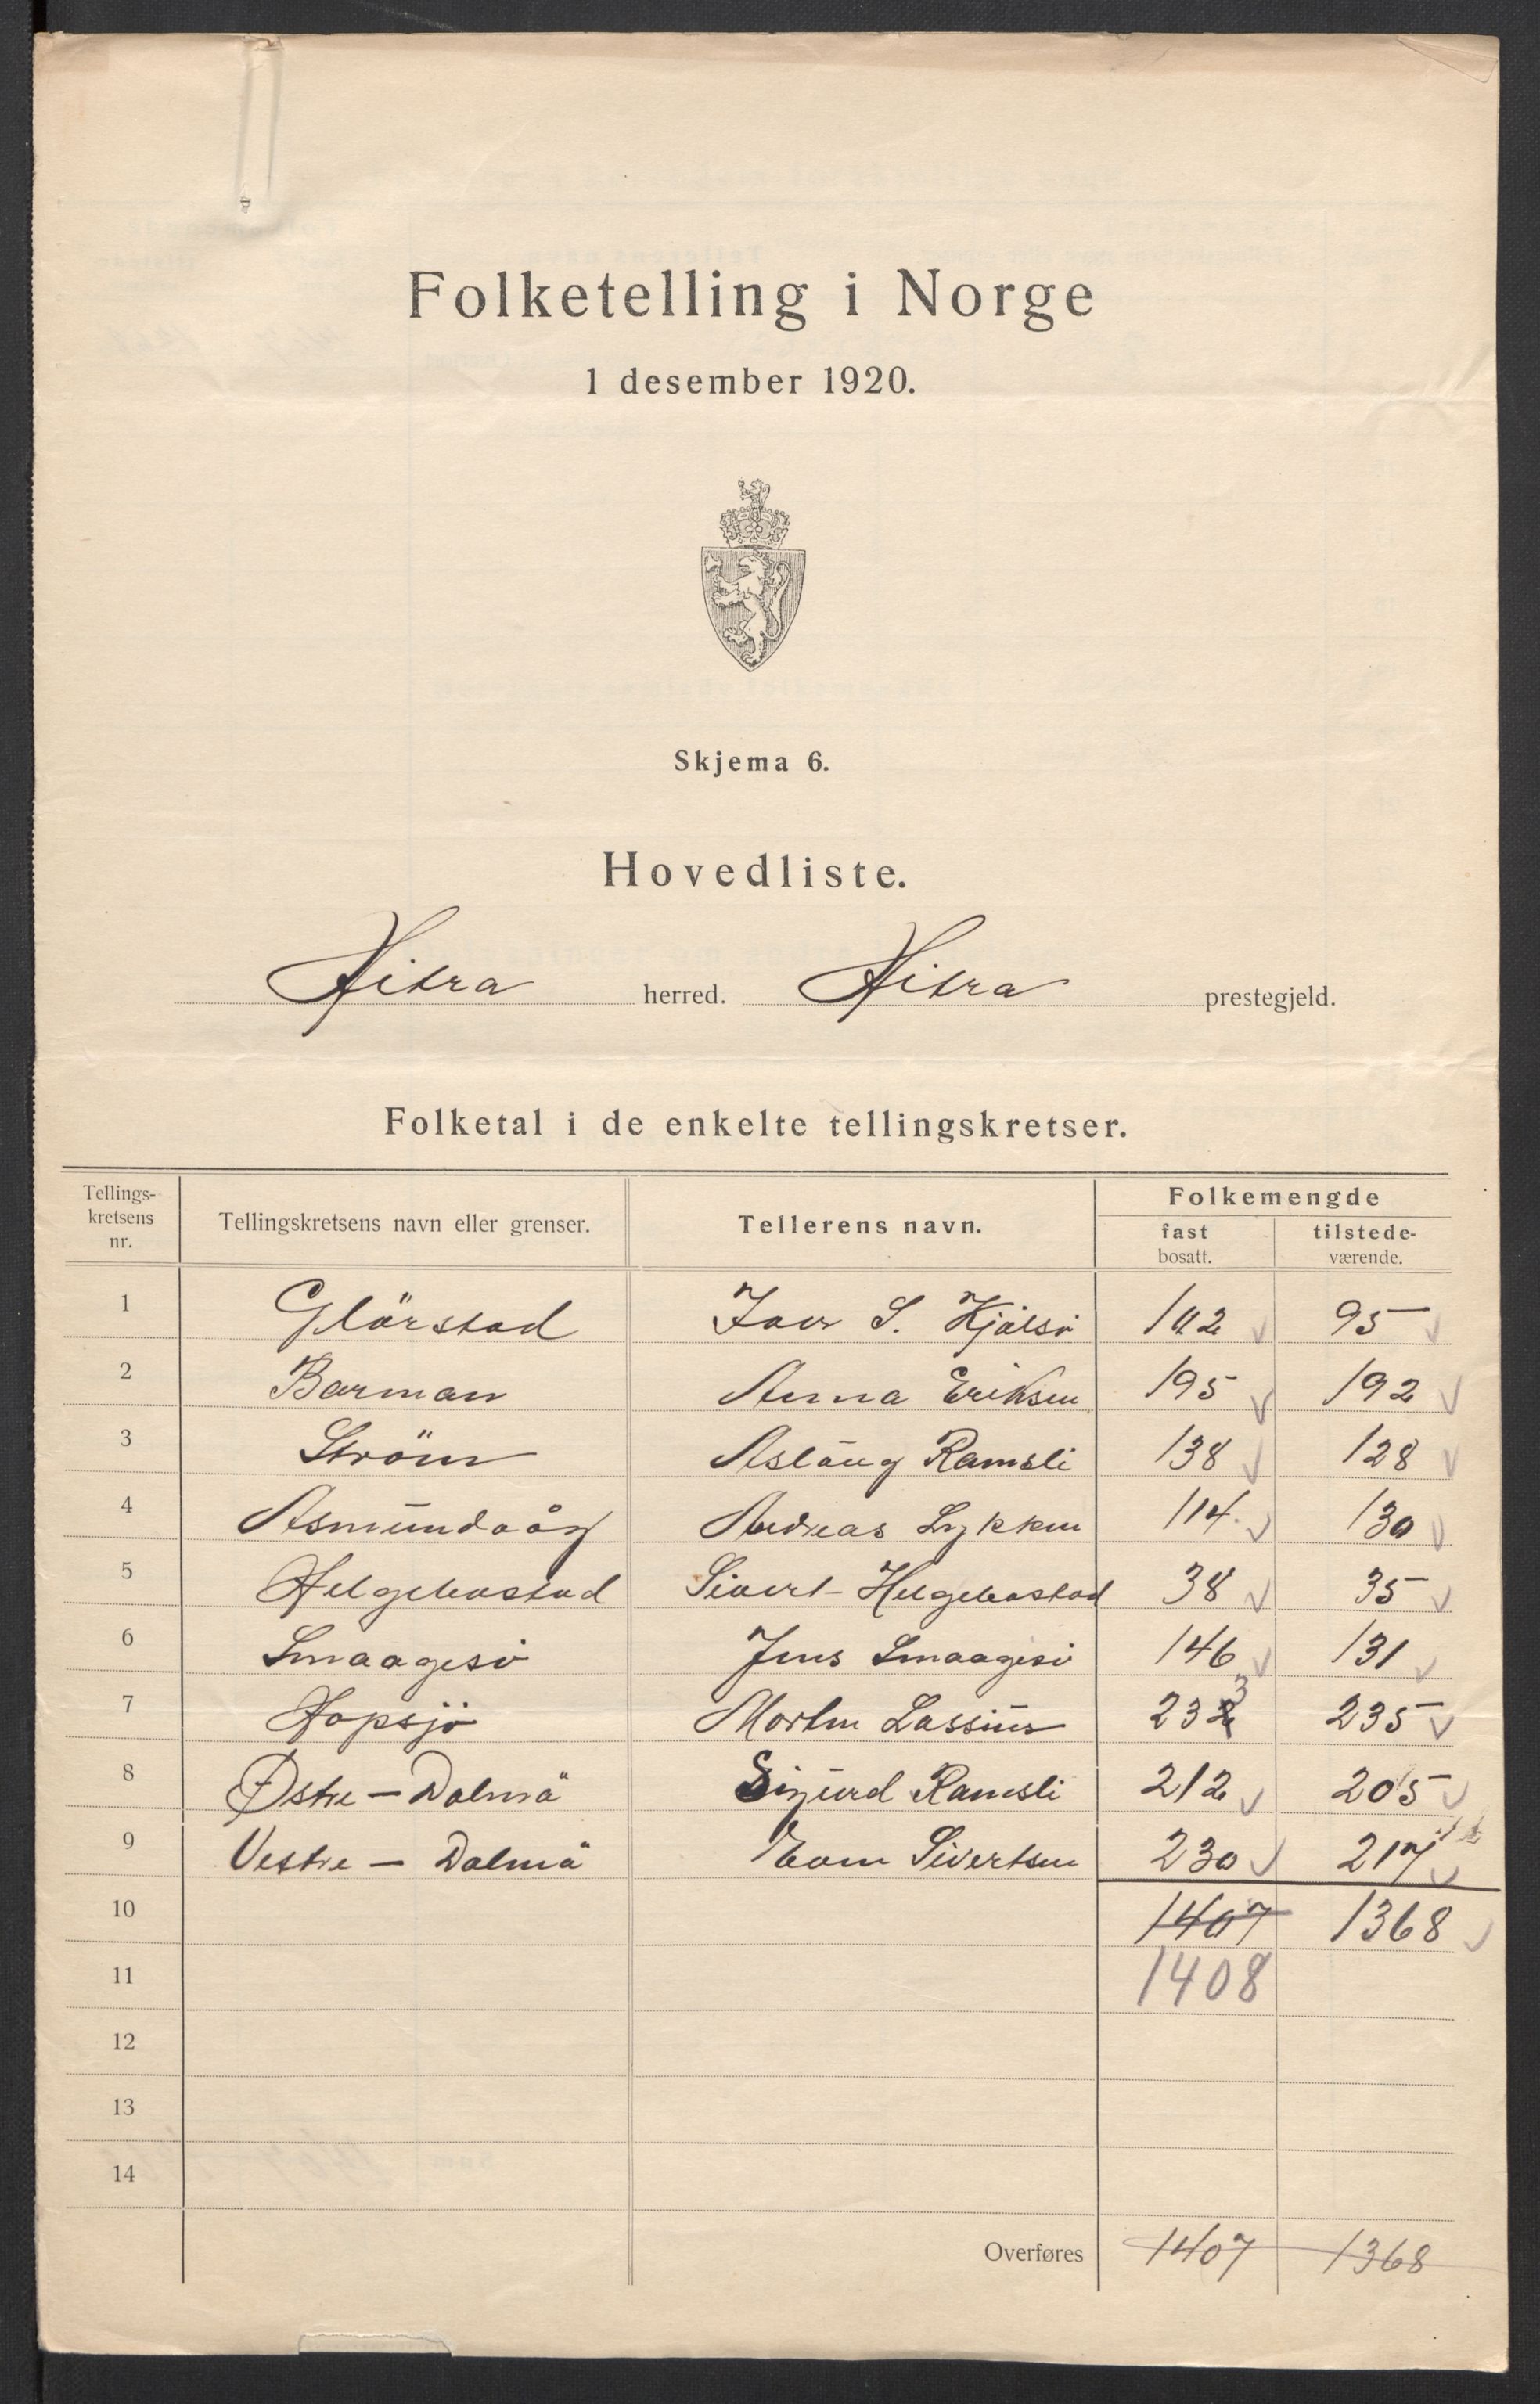 Folketelling i Norge
1 desember 1920.
Skjema 6.
Hovedliste.
Hitra herred. Hitra prestegjeld.
Folketal i de enkelte tellingskretser.
Tellings-
kretsens
nr.
Tellingskretsens navn eller grenser.
Tellerens navn.
Folkemengde
fast
bosatt.
tilstede-
værende.
1 Glörstad S. 102 95
2 Barman Anna Eriksen 195 192
3 Ström Aslaug Ramsli 138 128
4 Asmundvåg Andreas Lykken 114 130
5 Helgebostad Sivert Helgebostad 38 35
6 Smaagesö Jens Smaagesö 146 131
7 Hopsjö Morten Lassius 232 3 235
8 Østre - Dolmö Sigurd Ramsli 212 205
9 Vestre - Dolmö Sivertsen 230 217
10 1407 1368
11 1408
12
13
14
Overføres 1407 1368